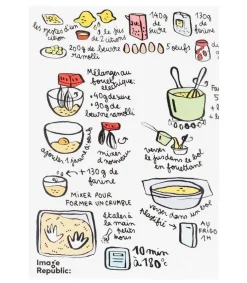 les zestes d'un citron
+ le jus
de 2 citrons
140g
de
sucre
130g
de
farine
200g de beurre
ramolli
5 œufs
Mélanger au
fouet
électrique:
+ 40g de sucre
+ 90g de
beurre ramolli
ajouter 1 jaune d'œuf
mixer
à nouveau
verser
le jus dans le bol
en fouettant
+ 130g de
farine
MIXER POUR
FORMER UN CRUMBLE
étaler à
la main
petits
trous
verser dans un bol
AU
FRIGO
1H
10 min
à 180°C
Image
Republic: